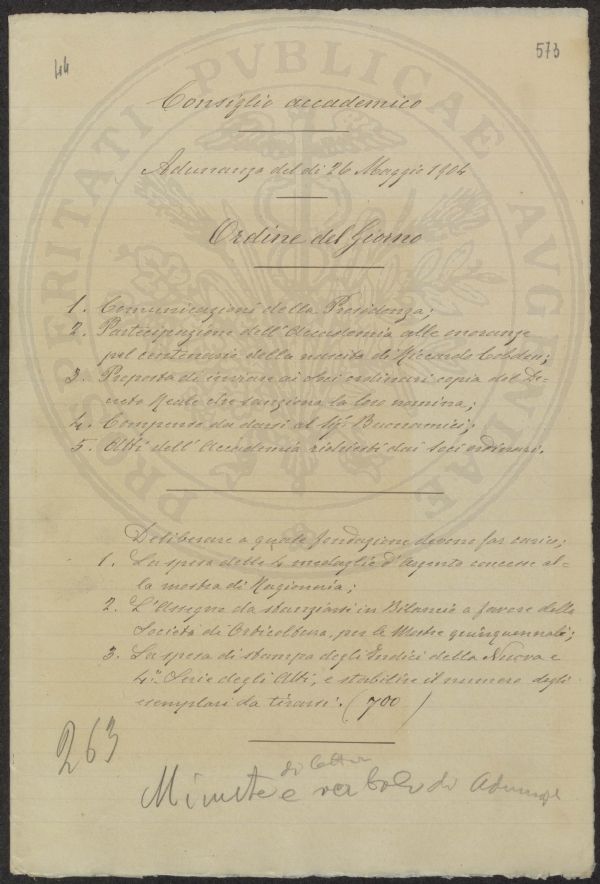 44
573
Consiglio accademico
Adunanza del dì 26 Maggio 1904
Ordine del Giorno
1. Comunicazioni della Presidenza;
2. Partecipazione dell'Accademia alle onoranze
pel centenario della nascita di Riccardo Cobden;
3. Proposta di inviare ai Soci ordinari copia del De-
creto Reale che sanziona la loro nomina;
4. Compenso da darsi al Sig. Buonamici;
5. Atti dell'Accademia richiesti dai Soci ordinari.
Deliberare a quale fondazione devono far carico;
1. La spesa delle 4 medaglie d'Argento concesse al-
la mostra di Ragioneria;
2. L'Assegno da stanziarsi in Bilancio a favore della
Società di Orticoltura, per le Mostre quinquennali;
3. La spesa di stampa degli Indici della Nuova e
4ª Serie degli Atti, e stabilire il numero degli
esemplari da tirarsi. (700)
263
di lettere
Minute e verbale di Adunanze
PROSPERITATI PVBLICAE AVGENDAE